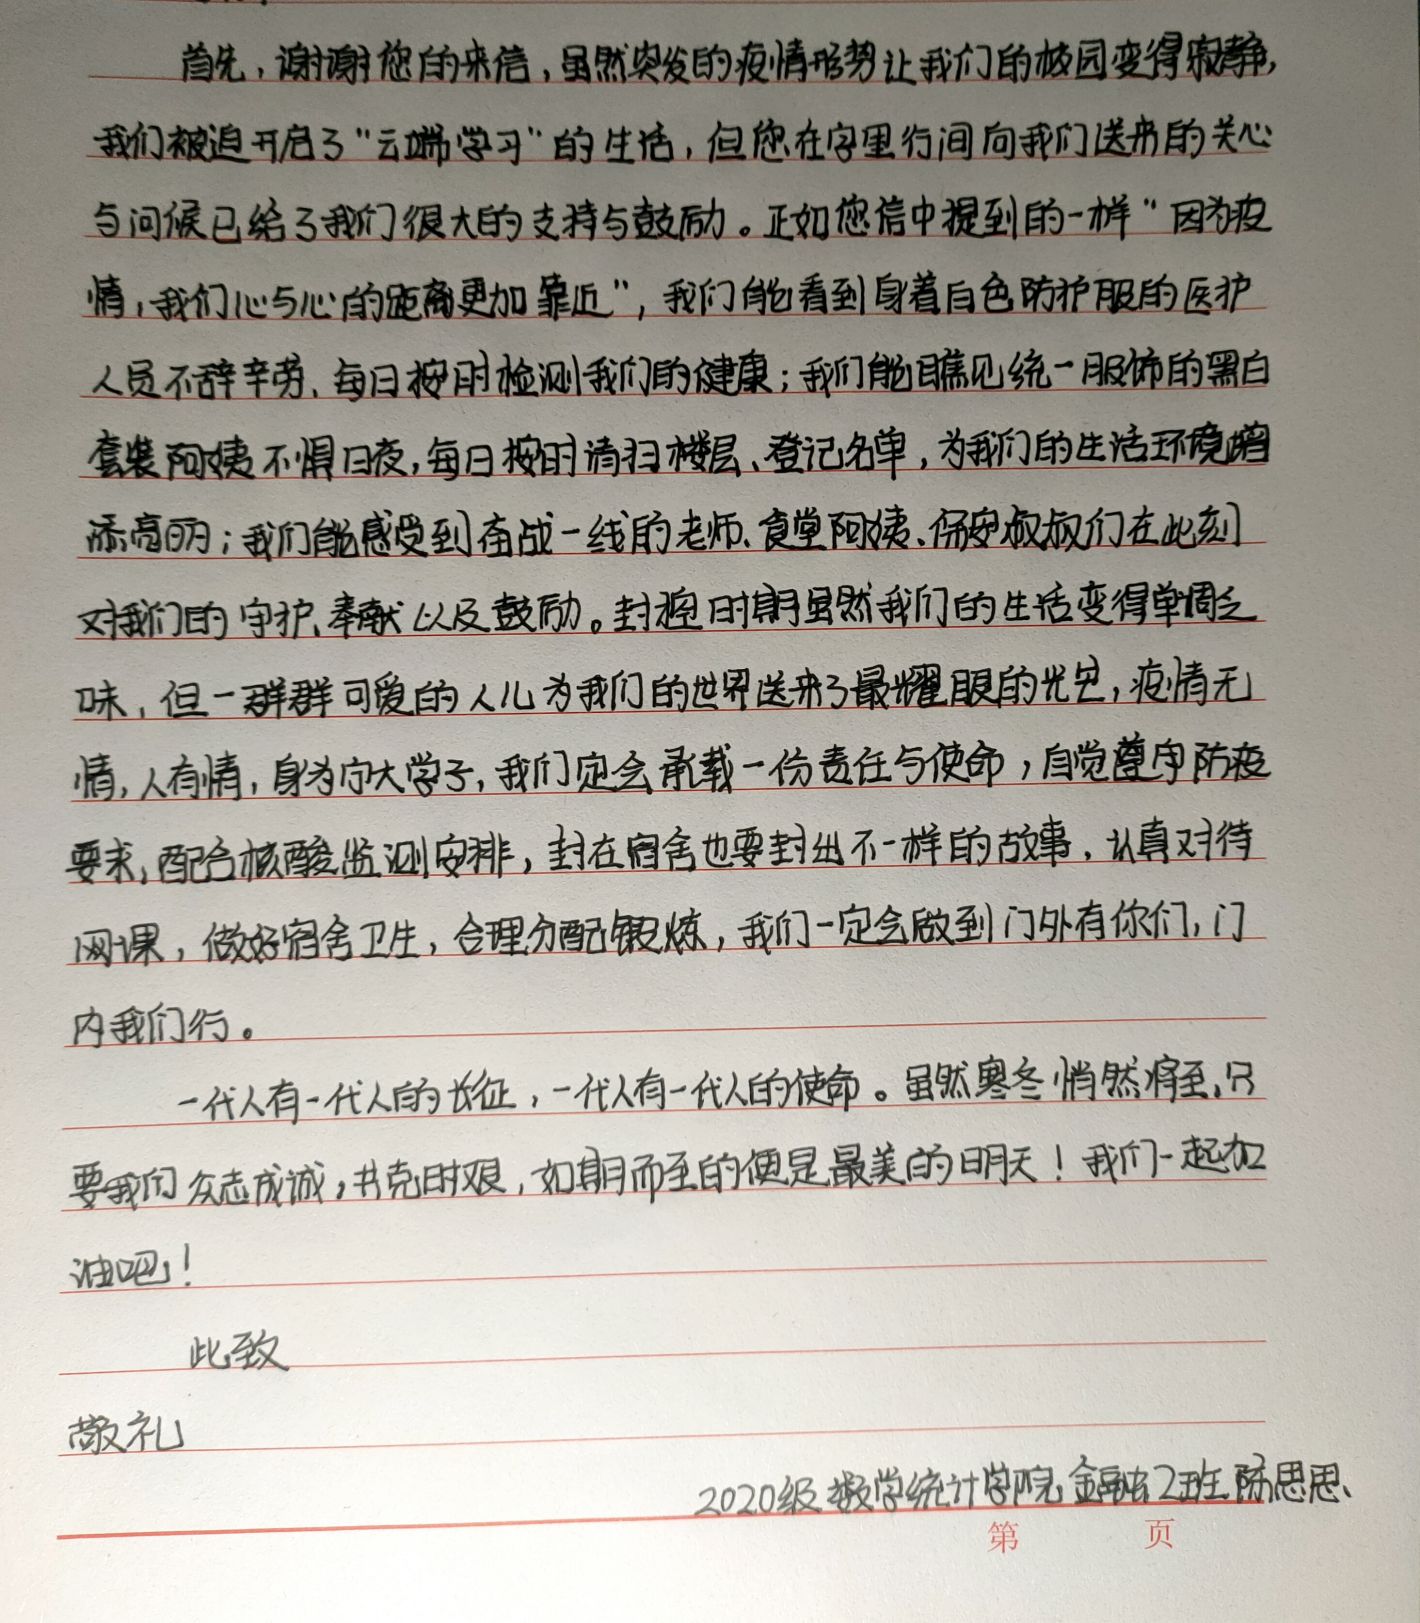 首先，谢谢您的来信，虽然突发的疫情形势让我们的校园变得寂静，
我们被迫开启了“云端学习”的生活，但您在字里行间向我们送来的关心
与问候已给了我们很大的支持与鼓励。正如您信中提到的一样“因为疫
情，我们心与心的距离更加靠近”，我们能看到身着白色防护服的医护
人员不辞辛劳、每日按时检测我们的健康；我们能瞧见统一服饰的黑白
套装阿姨不惧日夜，每日按时清扫楼层、登记名单，为我们的生活环境增
添亮丽；我们能感受到奋战一线的老师、食堂阿姨、保安叔叔们在此刻
对我们的守护、奉献以及鼓励。封控时期虽然我们的生活变得单调乏
味，但一群群可爱的人儿为我们的世界送来了最耀眼的光芒，疫情无
情，人有情，身为宁大学子，我们定会承载一份责任与使命，自觉遵守防疫
要求，配合核酸监测安排，封在宿舍也要封出不一样的故事，认真对待
网课，做好宿舍卫生，合理分配锻炼，我们一定会做到门外有你们，门
内我们行。
一代人有一代人的长征，一代人有一代人的使命。虽然寒冬悄然将至，只
要我们众志成诚，共克时艰，如期而至的便是最美的明天！我们一起加
油吧！
此致
敬礼
2020级数学统计学院金融2班陈思思、
第 页